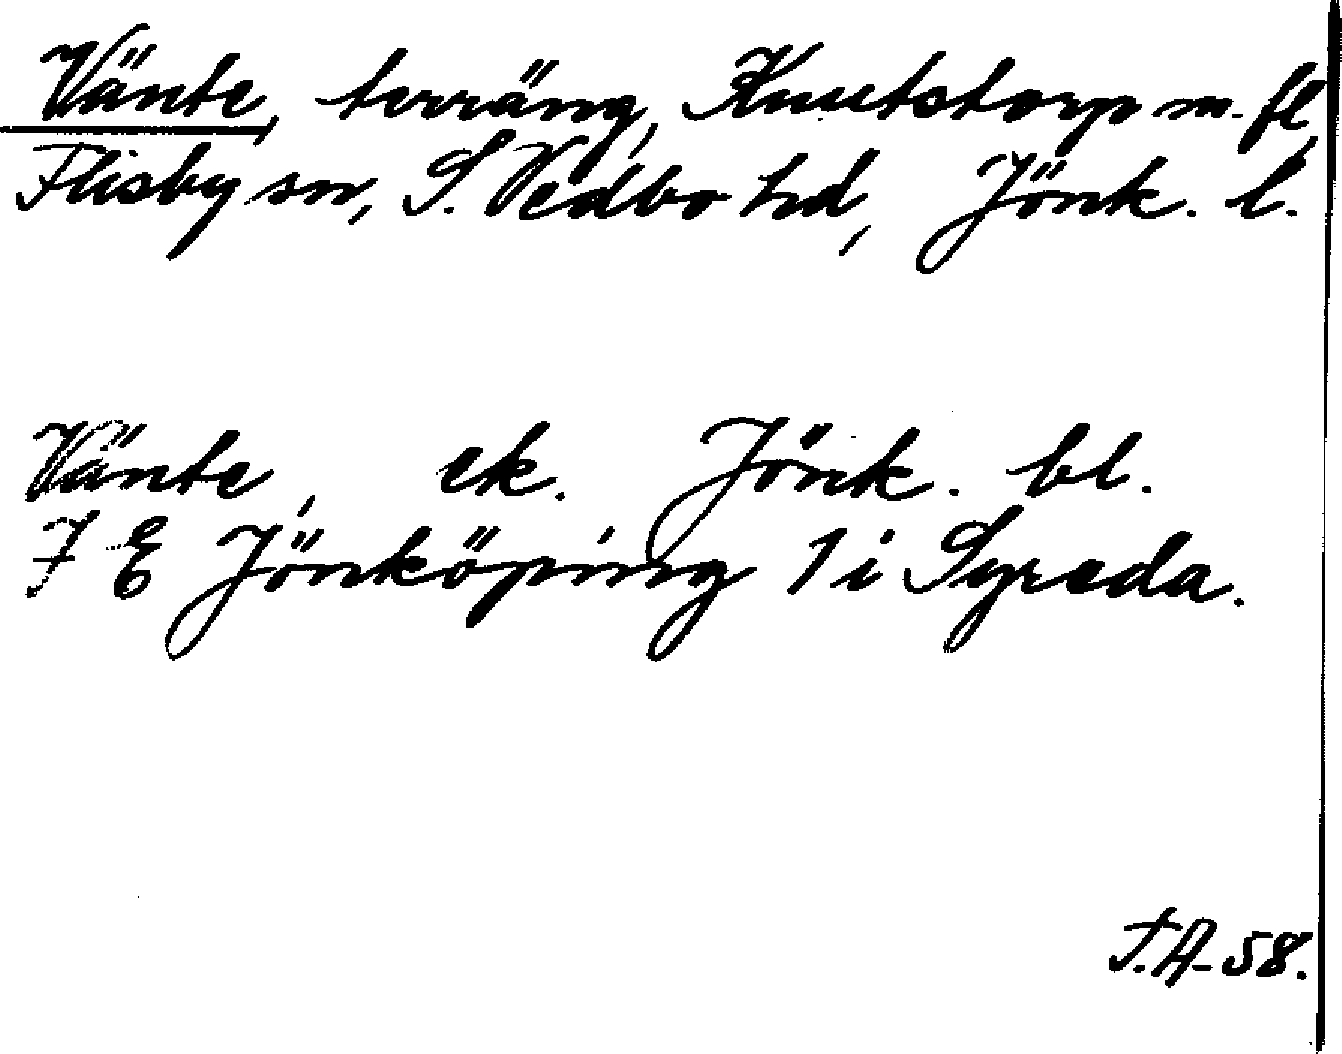 Vänte, terräng, Knutstorp m. fl
Flisby sn, S. Vedbo hd, Jönk. l.
Vänte, ek. Jönk. bl.
7 E Jönköping 1 i Syreda.
T.A-58.